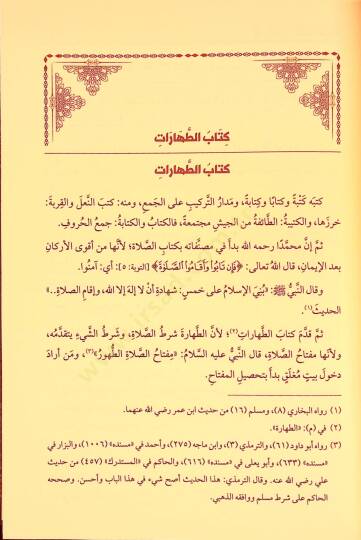 كِتَابُ الطَّهَارَاتِ
كتابُ الطَّهاراتِ
كتبَه كَتْبَةً وكتابًا وكِتابةً، ومَدارُ التَّركيبِ على الجَمعِ، ومنه: كتبَ النَّعلَ والقِربةَ:
خرزَها، والكتيبةُ: الطَّائفةُ من الجيشِ مجتمعةً، فالكتابُ والكتابةُ: جمعُ الحُروفِ.
ثمَّ إنَّ محمَّدًا رحمه الله بدأ في مصنَّفاتِه بكتابِ الصَّلاةِ؛ لأنَّها من أقوى الأركانِ
بعد الإيمانِ، قال اللهُ تعالى: ﴿فَإِن تَابُوا۟ وَأَقَامُوا۟ ٱلصَّلَوٰةَ﴾ [التوبة: ٥]: أي: آمنُوا.
وقال النَّبيُّ ﷺ: «بُنيَ الإسلامُ على خمسٍ: شهادةِ أنْ لا إلهَ إلا الله، وإقامِ الصَّلاةِ..»
الحديثَ(١).
ثمَّ قدَّمَ كتابَ الطَّهاراتِ(٢)؛ لأنَّ الطَّهارةَ شرطُ الصَّلاةِ، وشَرطُ الشَّيءِ يتقدَّمُه،
ولأنَّها مِفتاحُ الصَّلاةِ، قال النَّبيُّ عليه السَّلامُ: «مِفتاحُ الصَّلاةِ الطُّهورُ»(٣)، ومَن أرادَ
دخولَ بيتٍ مُغلَقٍ بدأَ بتحصيلِ المفتاحِ.
(١) رواه البخاري (٨)، ومسلم (١٦) من حديث ابن عمر رضي الله عنهما.
(٢) في (م): «الطهارة».
(٣) رواه أبو داود (٦١)، والترمذي (٣)، وابن ماجه (٢٧٥)، وأحمد في «مسنده» (١٠٠٦)، والبزار في
«مسنده» (٦٣٣)، وأبو يعلى في «مسنده» (٦١٦)، والحاكم في «المستدرك» (٤٥٧) من حديث
علي رضي الله عنه. وقال الترمذي: هذا الحديث أصح شيء في هذا الباب وأحسن. وصححه
الحاكم على شرط مسلم ووافقه الذهبي.